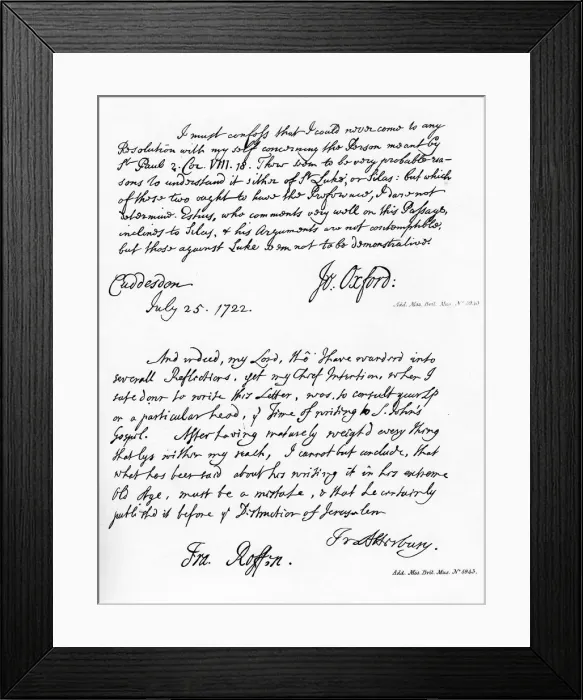 I must confess that I could never come to any
Resolution with my self concerning the Person meant by
St Paul 2. Cor. VIII. 18. There seem to be very probable rea-
sons to understand it either of St Luke, or Silas: but which
of these two ought to have the Preference, I dare not
determine. Estius, who comments very well on this Passage,
inclines to Silas, & his Arguments are not contemptible,
but those against Luke seem not to be demonstrative.
Cuddesdon
Jo. Oxford:
July 25. 1722.
Add. Mss. Brit. Mus. No
And indeed, my Lord, tho I have wander'd into
severall Reflections, yet my Chief Intention, when I
sate down to write this Letter, was, to consult your Lp
on a particular head, ye Time of writing to S. John's
Gospel. After having maturely weigh'd every thing
that lys within my reach, I cannot but conclude, that
what has been said about his writing it in his extreme
Old Age, must be a mistake, & that he certainly
publish'd it before ye Destruction of Jerusalem
Fr Atterbury.
Fra. Roffen.
Add. Mss. Brit. Mus. No 4843.